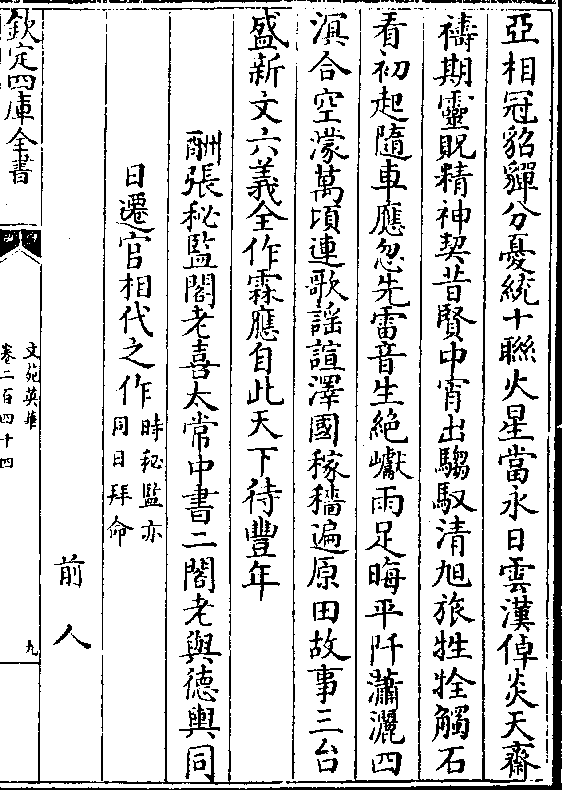 亞相冠貂蟬分憂統十聯火星當永日雲漢倬炎天齋
禱期靈貺精神契昔賢中宵出騶馭清旭旅牲牷觸石
看初起隨車應忽先雷音生絶巘雨足晦平阡瀟灑四
溟合空濛萬頃連歌謡諠澤國稼穡遍原田故事三台
盛新文六義全作霖應自此天下待豐年
酬張秘監閣老喜太常中書二閣老與德輿同
日遷官相代之作時秘監亦
同日拜命
前人
欽定四庫全書
文苑英華
卷二百四十四
九